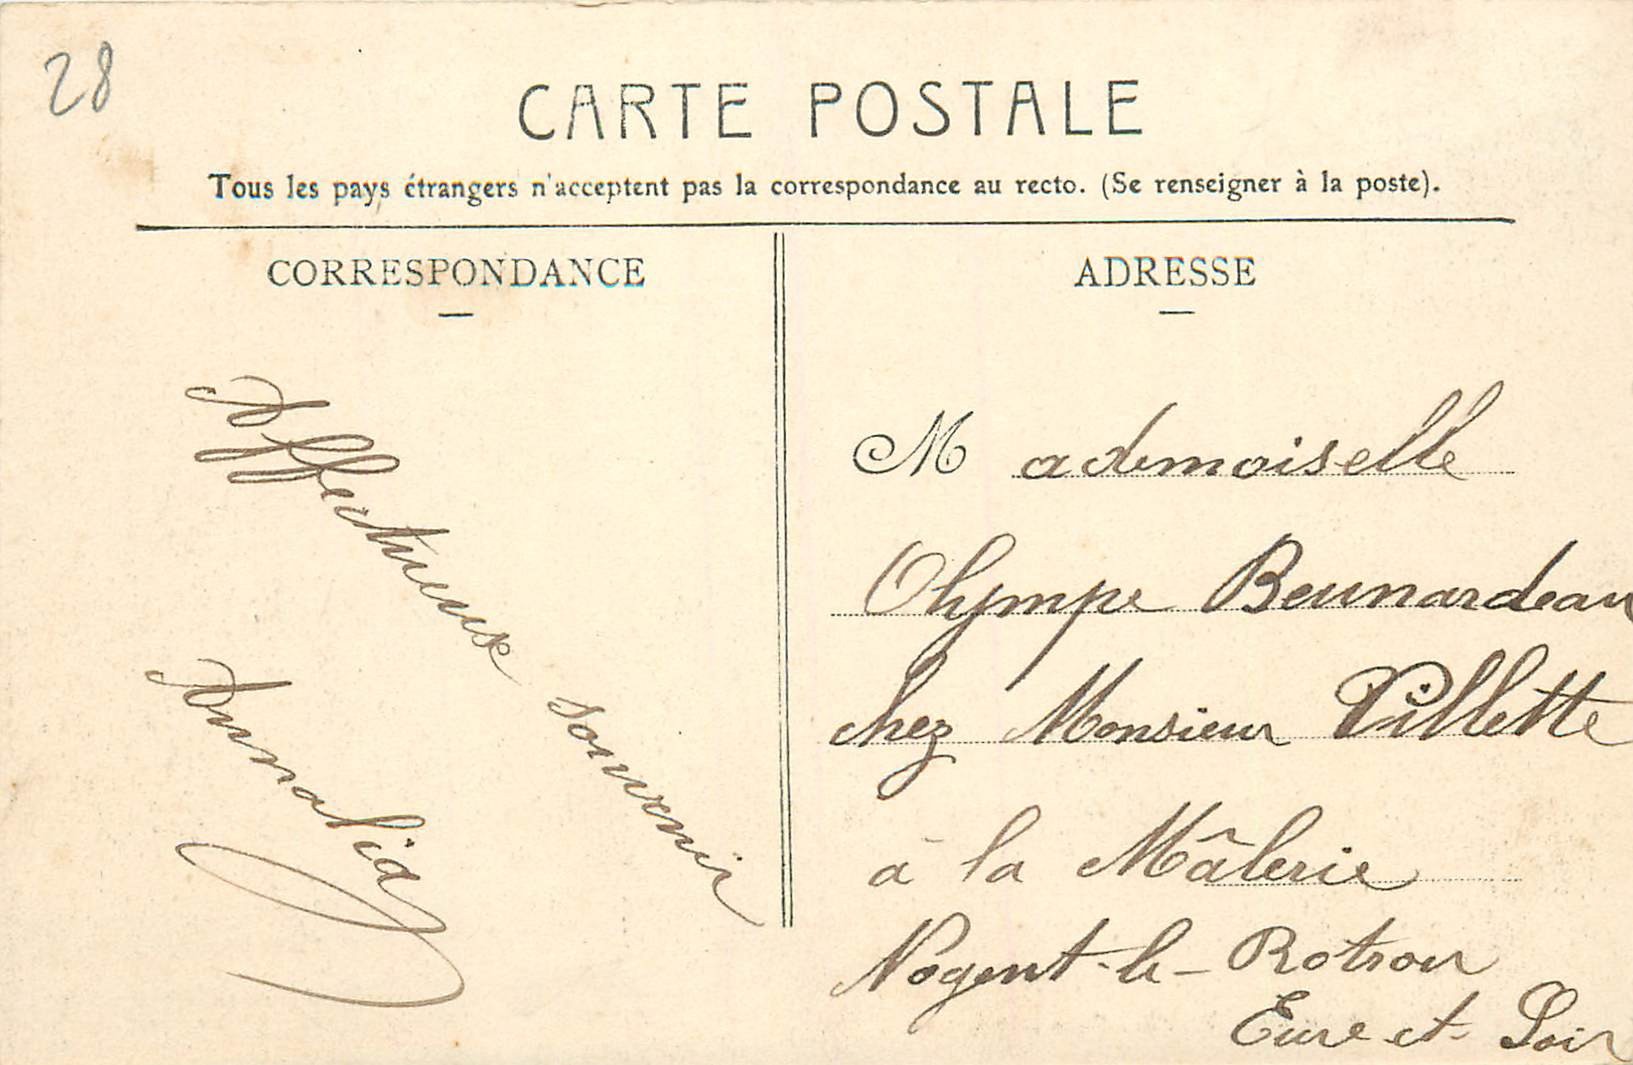 28
CARTE POSTALE
Tous les pays étrangers n'acceptent pas la correspondance au recto. (Se renseigner à la poste).
CORRESPONDANCE
Affectueuse souvenir
ADRESSE
Mademoiselle
Olympe
chez Monsieur Villette
à la Mâlerie
Nogent-le-Rotrou
Eure-et-Loir